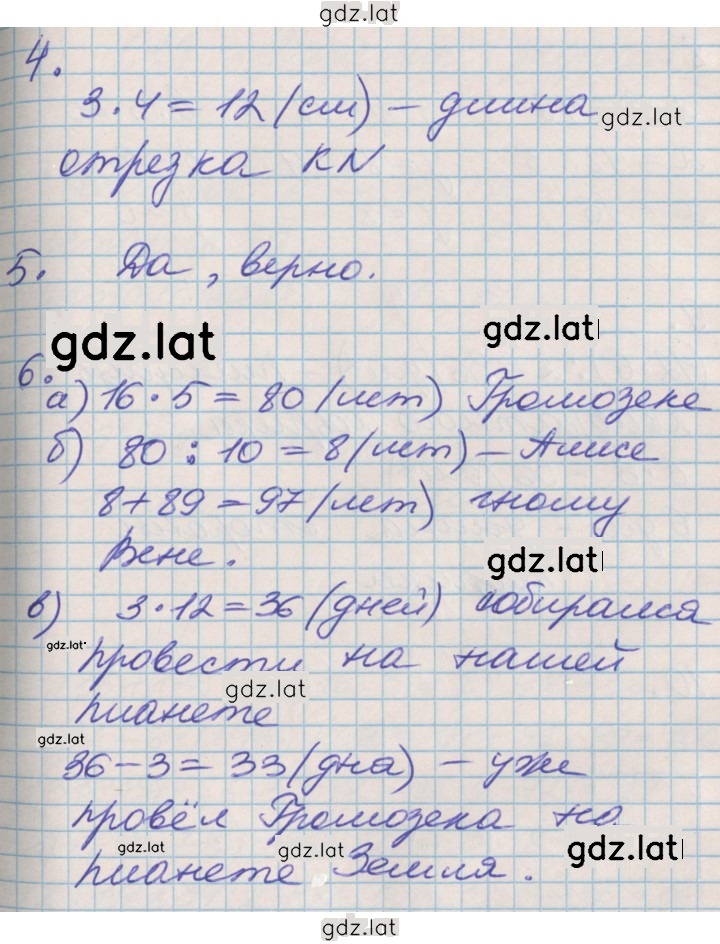 gdz.lat
4.
3 · 4 = 12 (см) – длина
gdz.lat
отрезка KN
5. Да, верно.
gdz.lat
gdz.lat
6.
а) 16 · 5 = 80 (лет) Громозеке
б) 80 : 10 = 8 (лет) – Алисе
8 + 89 = 97 (лет) гному
Вене.
gdz.lat
в) 3 · 12 = 36 (дней) собирался
gdz.lat
провести на нашей
gdz.lat
планете
gdz.lat
36 – 3 = 33 (дна) – уже
провёл Громозека на
gdz.lat
gdz.lat
gdz.lat
планете Земля.
gdz.lat